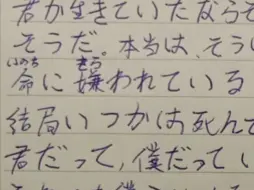 君が生きていたなら
そうだ。本当は、そうい
命に嫌われている
結局いつかは死んで
君だって、僕だってい